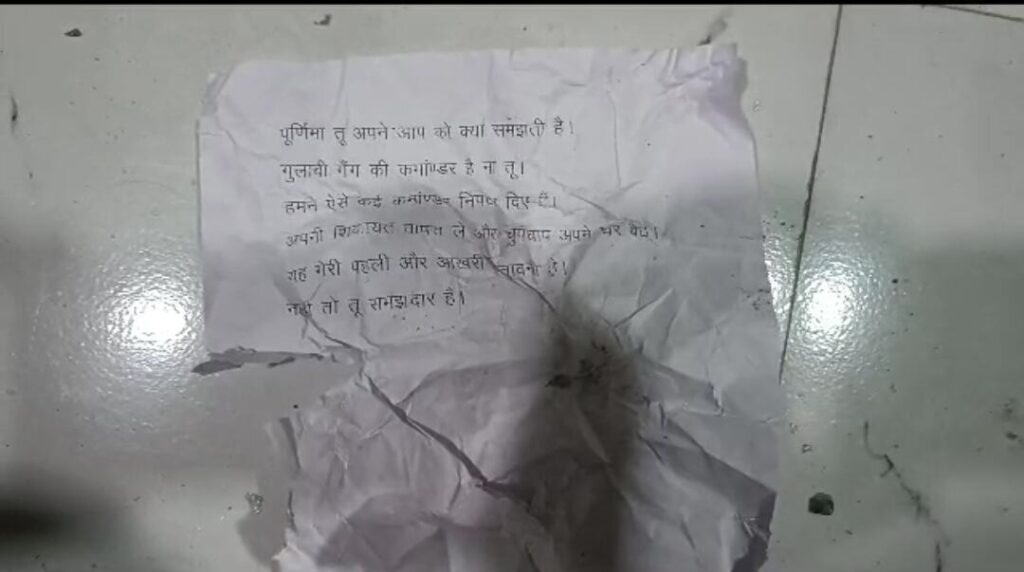 पूर्णिमा तू अपने आप को क्या समझती है।
गुलाबी गैंग की कमॉण्डर है ना तू।
हमने ऐसे कई कमॉण्डर निपटा दिए हैं।
अपनी शिकायत वापस ले और चुपचाप अपने घर बैठ।
यह मेरी पहली और आखरी है।
नही तो तू समझदार है।